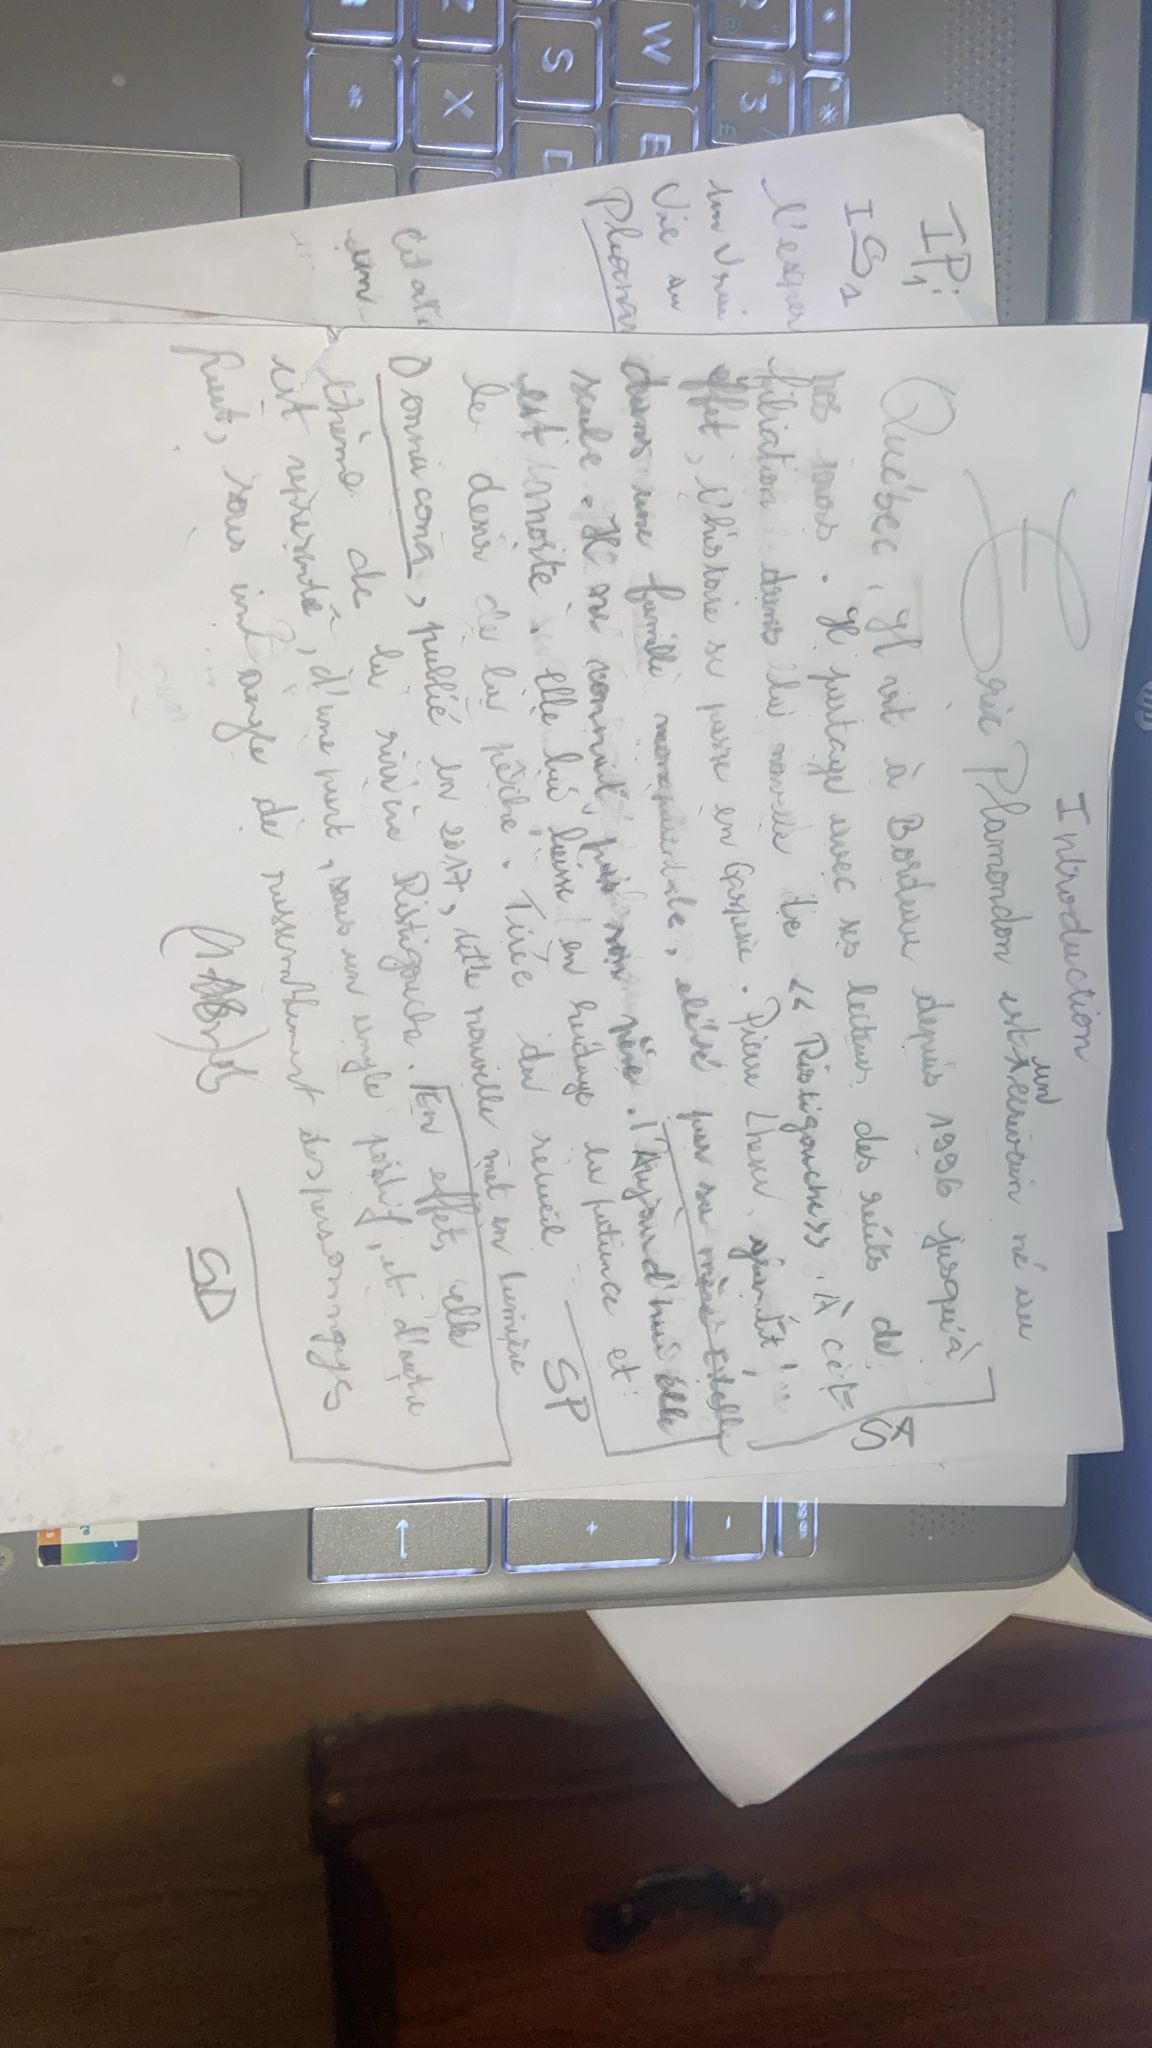 Introduction
Éric Plamondon est un écrivain né au
Québec, Il vit à Bordeau depuis 1996 jusqu'à
nos jours. Il partage avec ses lecteurs des récits de
filiation dans la nouvelle de << Ristigouche >>. À cet
effet, l'histoire se passe en Gaspésie. Pierre Lhéru, grandit
dans une famille monoparentale, élévé par sa mère
seule. Il ne connait pas son père. Aujourd'hui elle
est morte elle lui laisse en héritage la patience et
le desir de la pêche. Tirée du recueil
Donnacona, publié en 2017, cette nouvelle met en lumière
thème de la rivière Ristigouche. En effet, elle
est représenté, d'une part, sous un angle positif, et d'autre
part, sous un angle de ressemblement des personnages
SA
SP
SD
IP1:
IS1
l'exper
un vrai
Vie au
Plamo
Citati
um
W
E
S
D
Z
X
3
*
+
-
pg dn
←